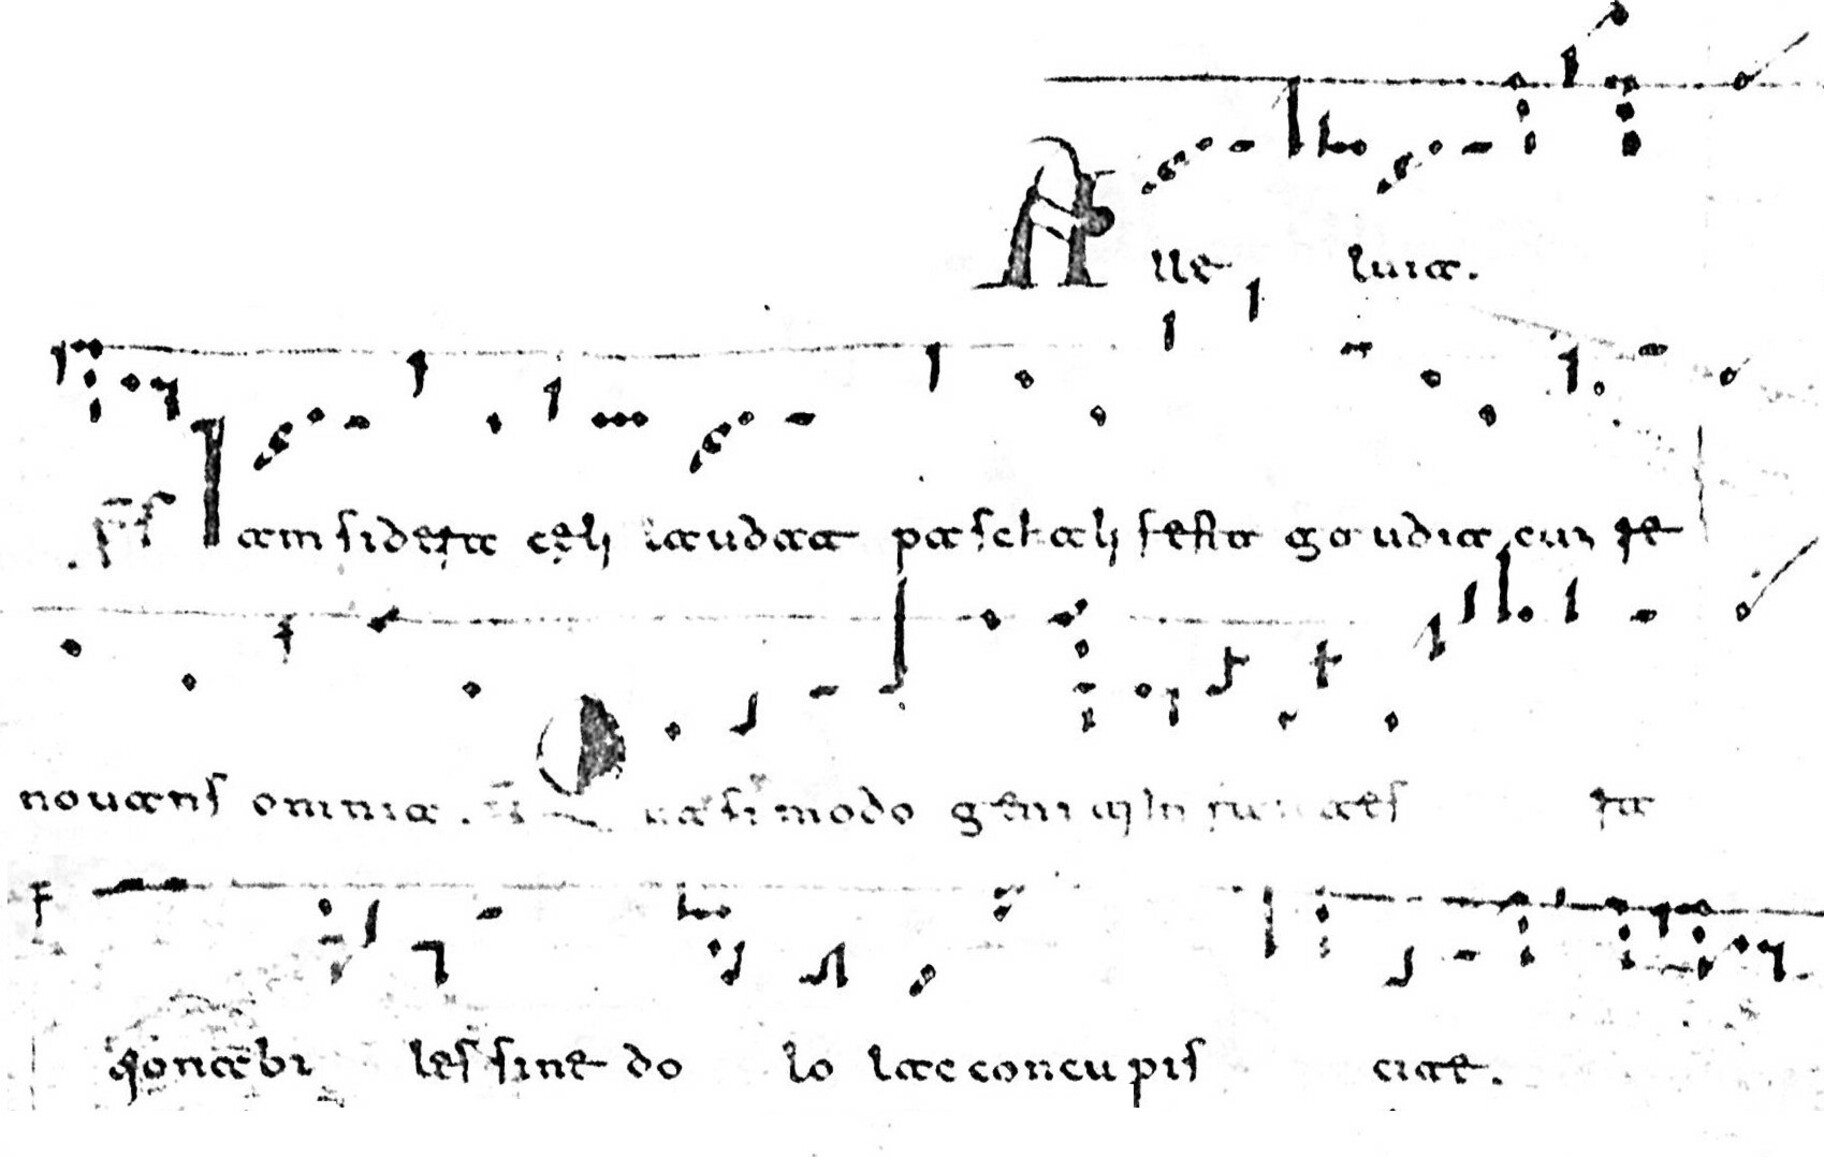 Alle luia.
Iam sidera cęli laudaa paschali festa gaudia cum re
novans omnia. uasi modo geni qi In fa ates ra
tionabi les sine do lo lac concupis ciat.